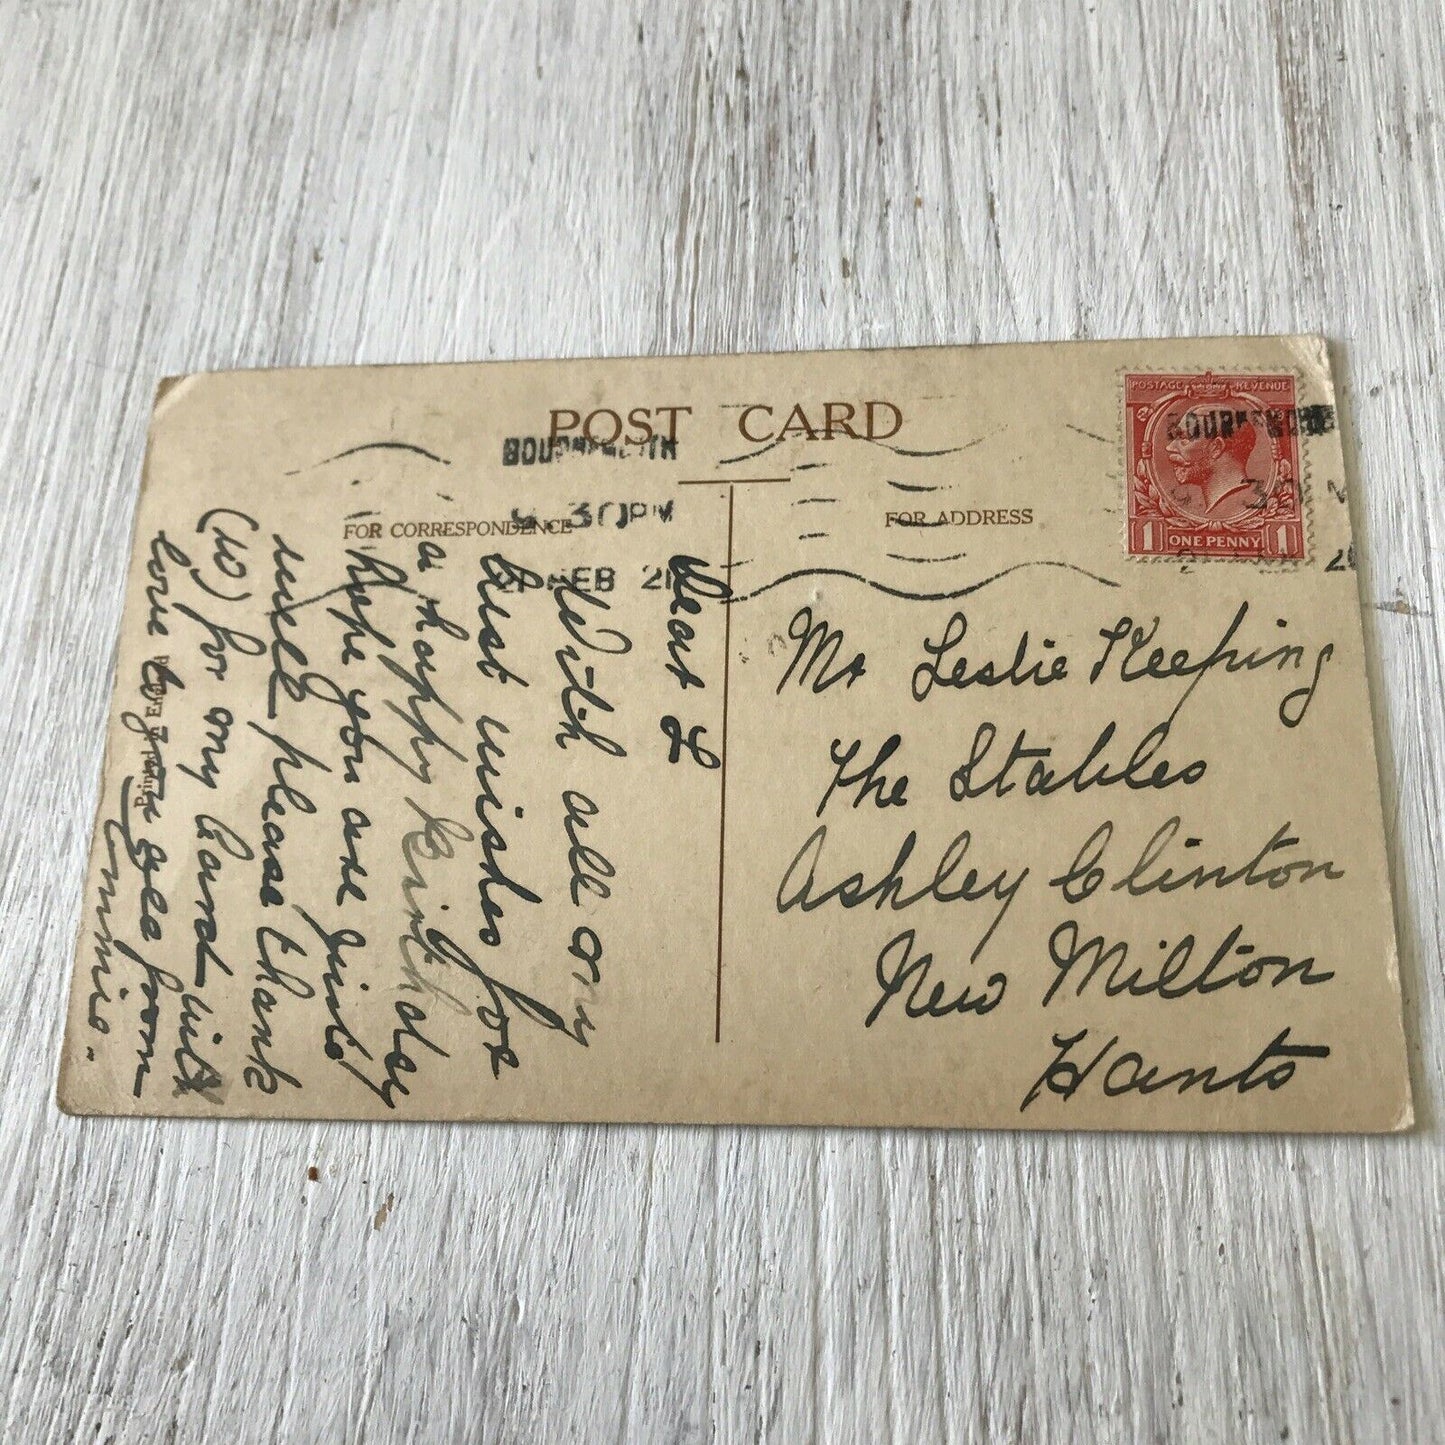 POST CARD
FOR CORRESPONDENCE
FOR ADDRESS
POSTAGE REVENUE
1 ONE PENNY 1
30 PM
FEB 21
Dear L
With all my
best wishes for
a happy Birthday
hope you are quite
well please thank
for my card with
love to you from
Mr Leslie Keeping
The Stables
Ashley Clinton
New Milton
Hants
Printed in